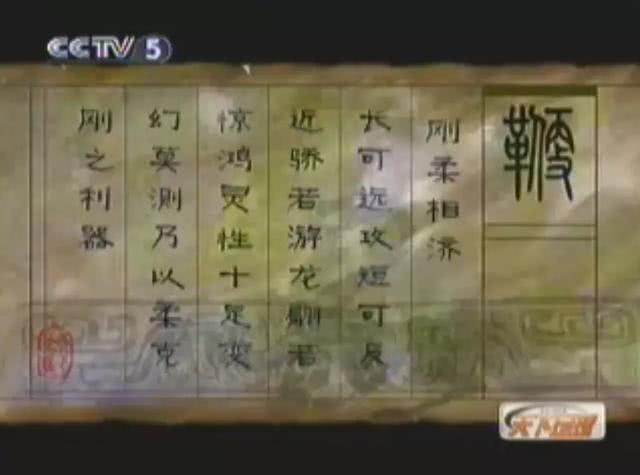 CCTV 5
鞭
刚柔相济
长可远攻短可及
近骄若游龙翩若
惊鸿灵性十足变
幻莫测乃以柔克
刚之利器